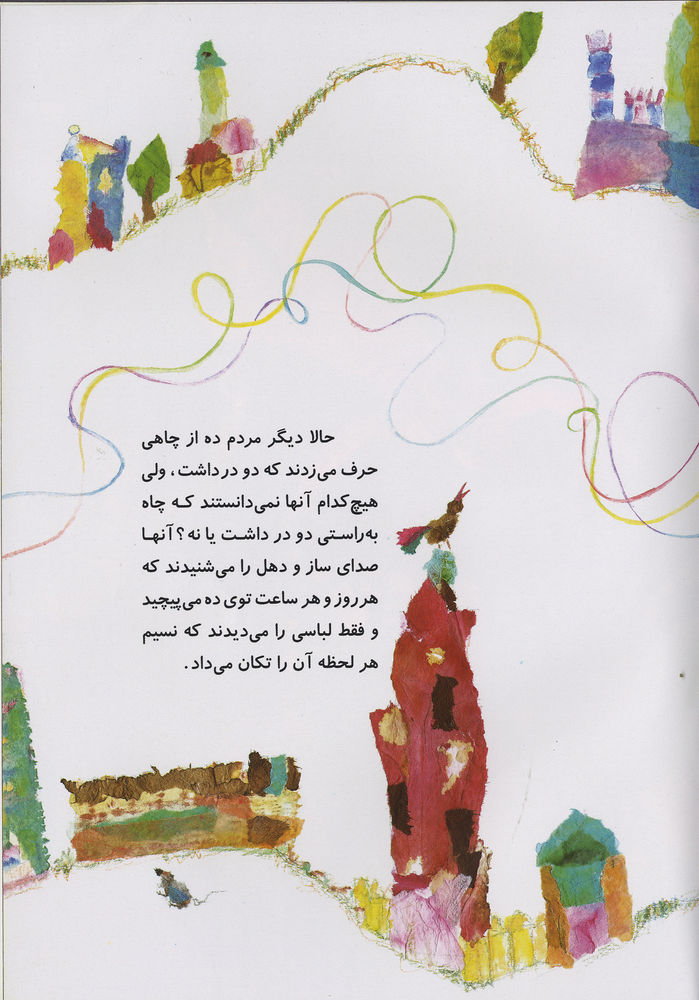 حالا دیگر مردم ده از چاهی
حرف می‌زدند که دو در داشت، ولی
هیچ‌کدام آنها نمی‌دانستند کـه چاه
به‌راستی دو در داشت یا نه؟ آنهـا
صدای ساز و دهل را می‌شنیدند که
هر روز و هر ساعت توی ده می‌پیچید
و فقط لباسی را می‌دیدند که نسیم
هر لحظه آن را تکان می‌داد.